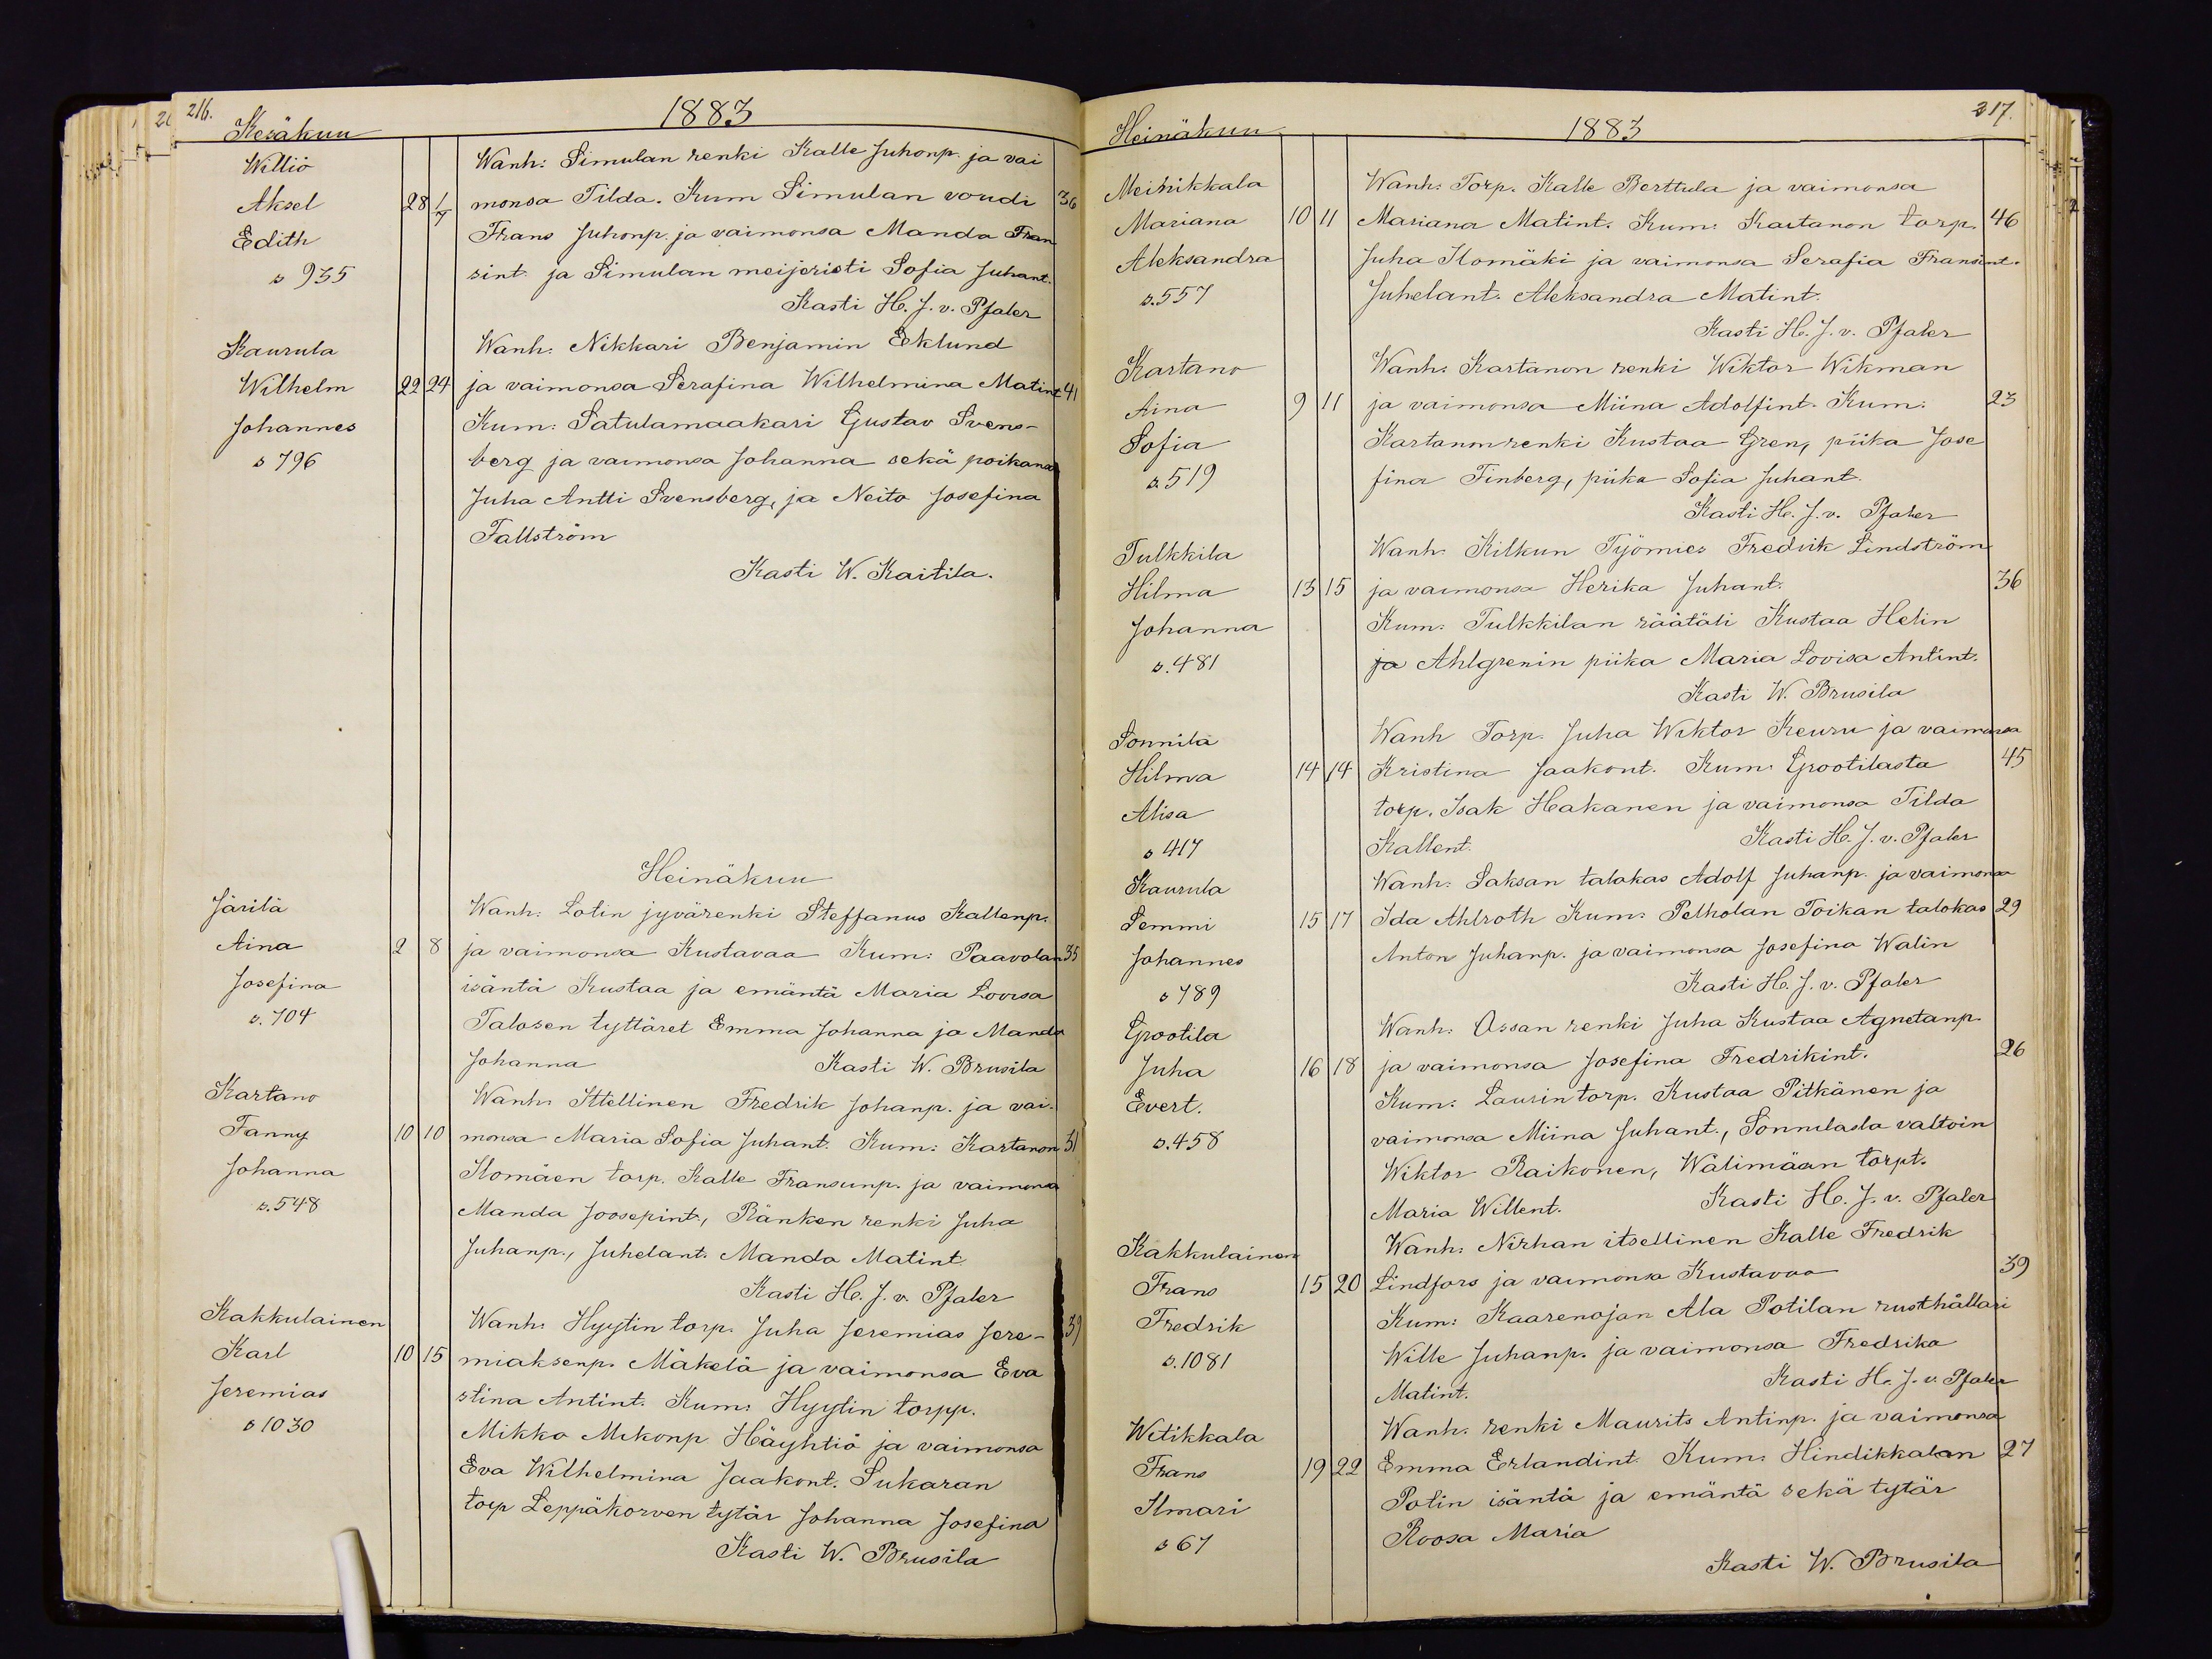 216.
1883
Kesäkuu
Williö Wanh: Simulan renki Kalle Juhonp. ja vai
Aksel 28 1/7 monsa Tilda. Kum Simulan voudi 36
Edith Frans Juhonp. ja vaimonsa Manda Fran
s 935 sint. ja Simulan meijeristi Sofia Juhant.
Kasti H. J. v. Pfaler
Kaurula Wanh. Nikkari Benjamin Eklund
Wilhelm 22 24 ja vaimonsa Serafina Wilhelmina Matint 41
Johannes Kum: Satulamaakari Gustav Svens-
s 796 berg ja vaimonsa Johanna sekä poikansa
Juha Antti Svensberg, ja Neito Josefina
Fallström
Kasti W. Kaitila.
Heinäkuu
Järilä Wanh: Lotin jyvärenki Steffanus Kallenp.
Aina 2 8 ja vaimonsa Kustavaa Kum: Paavolan 35
Josefina isäntä Kustaa ja emäntä Maria Lovisa
s. 704 Talosen tyttäret Emma Johanna ja Manda
Johanna Kasti W. Brusila
Kartano Wanh: Ittellinen Fredrik Johanp. ja vai-
Fanny 10 10 monsa Maria Sofia Juhant. Kum: Kartanon 31
Johanna Ilomäen torp. Kalle Fransunp. ja vaimonsa
s. 548 Manda Joosepint., Ränken renki Juha
Juhanp., Juhelant. Manda Matint.
Kasti H. J. v. Pfaler
Kakkulainen Wanh: Hyytin torp. Juha Jeremias Jere- 39
Karl 10 15 miaksenp. Mäkelä ja vaimonsa Eva
Jeremias stina Antint. Kum: Hyytin torpp.
s 1030 Mikko Mikonp Häyhtiö ja vaimonsa
Eva Wilhelmina Jaakont. Sukaran
torp Leppäkorven tytär Johanna Josefina
Kasti W. Brusila
217.
1883
Heinäkuu
Meinikkala Wanh: Torp. Kalle Berttula ja vaimonsa
Mariana 10 11 Mariana Matint. Kum: Kartanon torp. 46
Aleksandra Juha Ilomäki ja vaimonsa Serafia Fransint.
s. 557 Juhelant. Aleksandra Matint.
Kasti H. J. v. Pfaler
Kartano Wanh: Kartanon renki Wiktor Wikman
Aina 9 11 ja vaimonsa Miina Adolfint. Kum: 23
Sofia Kartanon renki Kustaa Gren, piika Jose
s. 519 fina Finberg, piika Sofia Juhant.
Kasti H. J. v. Pfaler
Tulkkila Wanh: Kilkun Työmies Fredrik Lindström
Hilma 13 15 ja vaimonsa Herika Juhant. 36
Johanna Kum: Tulkkilan räätäli Kustaa Helin
s. 481 ja Ahlgrenin piika Maria Lovisa Antint.
Kasti W. Brusila
Sonnila Wanh Torp. Juha Wiktor Keuru ja vaimonsa
Hilma 14 14 Kristina Jaakont. Kum: Grootilasta 45
Alisa torp. Isak Hakanen ja vaimonsa Tilda
s 417 Kallent. Kasti H. J. v. Pfaler
Kaurula Wanh: Saksan talokas Adolf Juhanp. ja vaimonsa
Semmi 15 17 Ida Ahlroth Kum: Pelholan Toikan talokas 29
Johannes Anton Juhanp. ja vaimonsa Josefina Walin
s 789 Kasti H. J. v. Pfaler
Grootila Wanh: Ossan renki Juha Kustaa Agnetanp.
Juha 16 18 ja vaimonsa Josefina Fredrikint. 26
Evert. Kum: Laurin torp. Kustaa Pitkänen ja
s. 458 vaimonsa Miina Juhant., Sonnilasta valtoin
Wiktor Raikonen, Wälimään torpt.
Maria Willent. Kasti H. J. v. Pfaler
Kakkulainen Wanh: Nirhan itsellinen Kalle Fredrik
Frans 15 20 Lindfors ja vaimonsa Kustavaa 39
Fredrik Kum: Kaarenojan Ala Potilan rusthållari
s. 1081 Wille Juhanp. ja vaimonsa Fredrika
Matint. Kasti H. J. v. Pfaler
Witikkala Wanh. renki Maurits Antinp. ja vaimonsa
Frans 19 22 Emma Erlandint. Kum: Hindikkalan 27
Ilmari Potin isäntä ja emäntä sekä tytär
s 67 Roosa Maria
Kasti W. Brusila